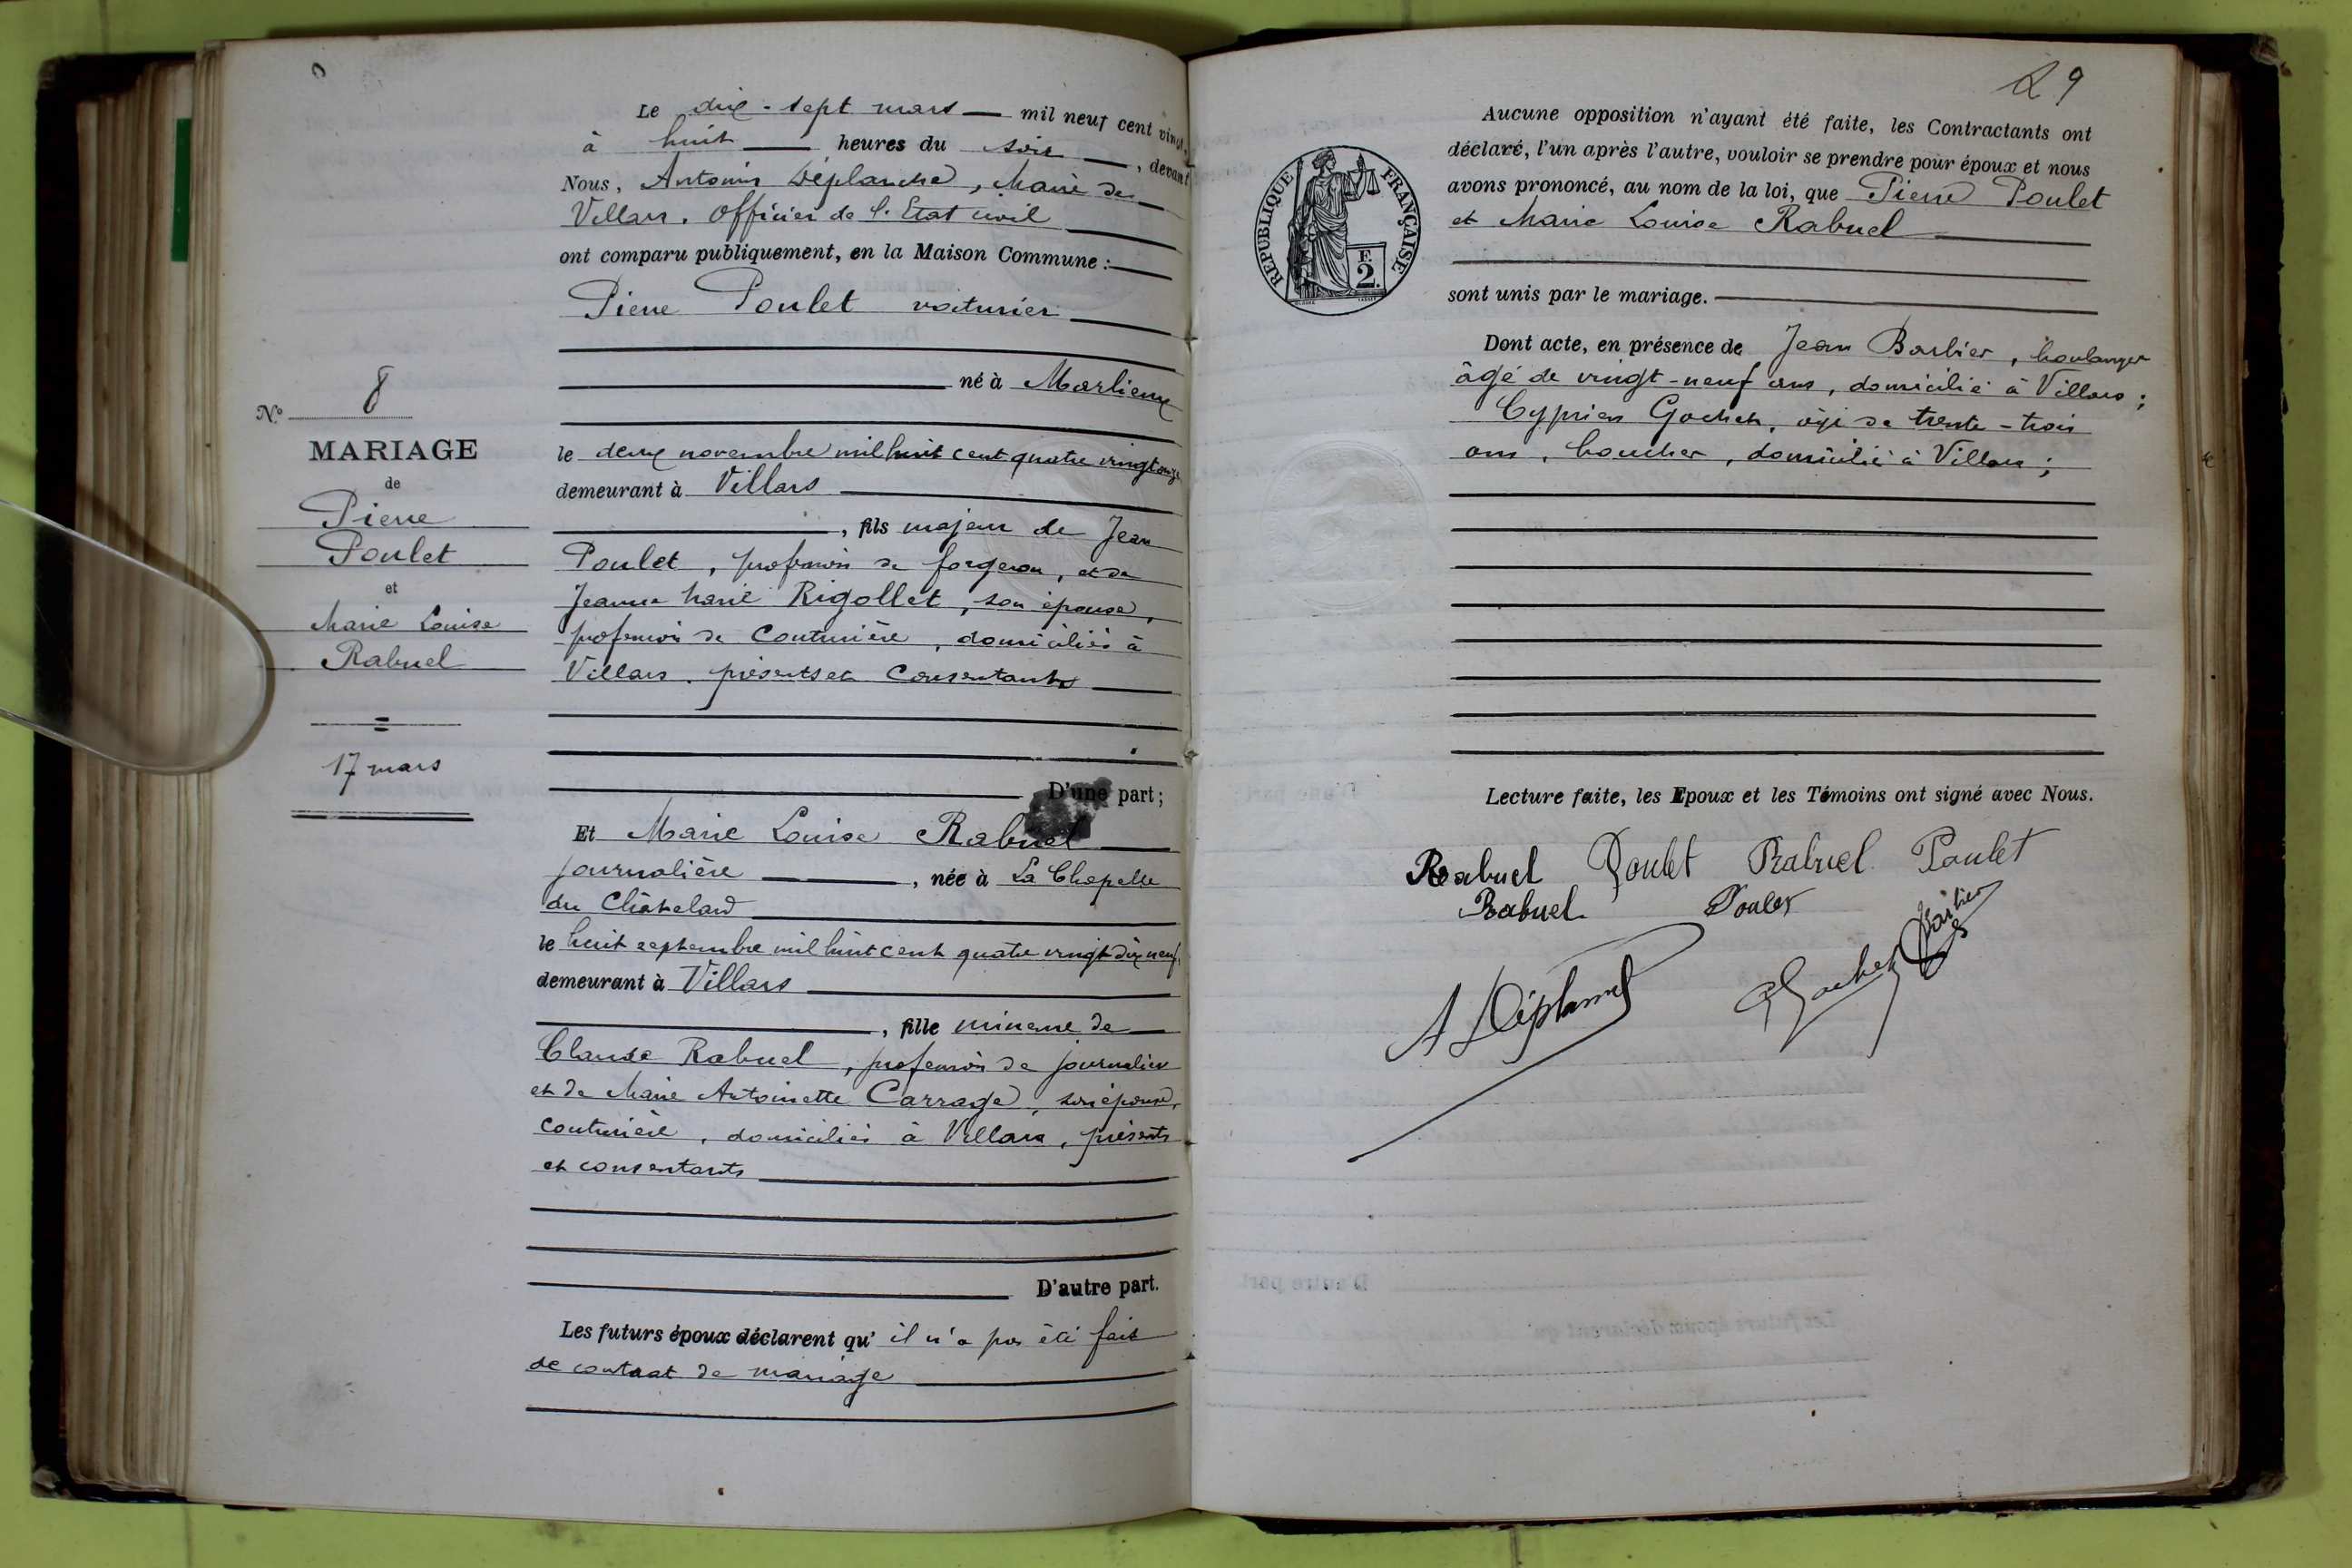 Le dix-sept mars mil neuf cent vingt
à huit heures du soir, devant
Nous, Antonin Déplanche, Maire de
Villars. Officier de l'Etat civil
ont comparu publiquement, en la Maison Commune :
Pierre Poulet voiturier
né à Marlieux
le deux novembre mil huit cent quatre vingt onze
demeurant à Villars
, fils majeur de Jean
Poulet, profession de forgeron, et de
Jeanne Marie Rigollet, son épouse,
profession de Couturière, domiciliés à
Villars. présents et Consentants
D'une part;
Nº 8
MARIAGE
de
Pierre
Poulet
et
Marie Louise
Rabuel
17 mars
Et Marie Louise Rabuel
journalière, née à La Chapelle
du Châtelard
le huit septembre mil huit cent quatre vingt dix neuf,
demeurant à Villars
, fille mineure de
Claude Rabuel, profession de journalier
et de Marie Antoinette Carrage, son épouse,
couturière, domiciliés à Villars, présents
et consentants
D'autre part.
Les futurs époux déclarent qu'il n'a pas été fait
de contrat de mariage
29
REPUBLIQUE FRANÇAISE
F.
2.
Aucune opposition n'ayant été faite, les Contractants ont
déclaré, l'un après l'autre, vouloir se prendre pour époux et nous
avons prononcé, au nom de la loi, que Pierre Poulet
et Marie Louise Rabuel
sont unis par le mariage.
Dont acte, en présence de Jean Barbier, boulanger
âgé de vingt-neuf ans, domicilié à Villars;
Cyprien Gochet, âgé de trente-trois
ans, boucher, domicilié à Villars;
Lecture faite, les Epoux et les Témoins ont signé avec Nous.
Rabuel Poulet Rabuel Poulet
Rabuel Poulet
Barbier
A Déplanche Gochet